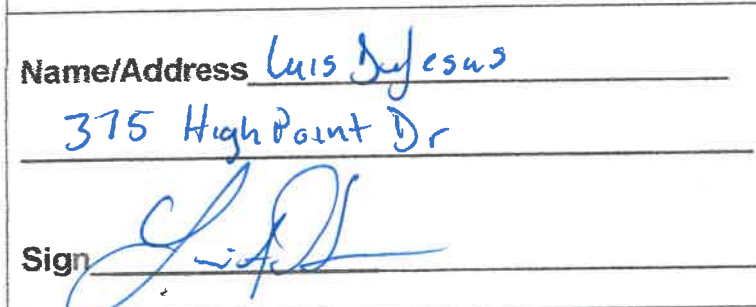 Name/Address Luis DeJesus
375 High Point Dr
Sign